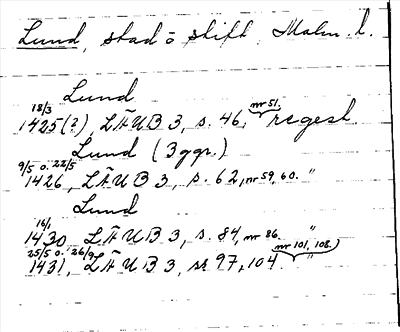 Lund, stad o stift, Malm. l.
Lund
18/3 nr 51,
1425(?), LÄUB 3, s. 46, regest
Lund (3 ggr.)
9/5 o. 22/5
1426, LÄUB 3, s. 62, nr 59, 60. "
Lund
16/1
1430, LÄUB 3, s. 84, nr 86. "
25/5 o. 26/9 nr 101, 108.)
1431, LÄUB 3, ss 97, 104. "